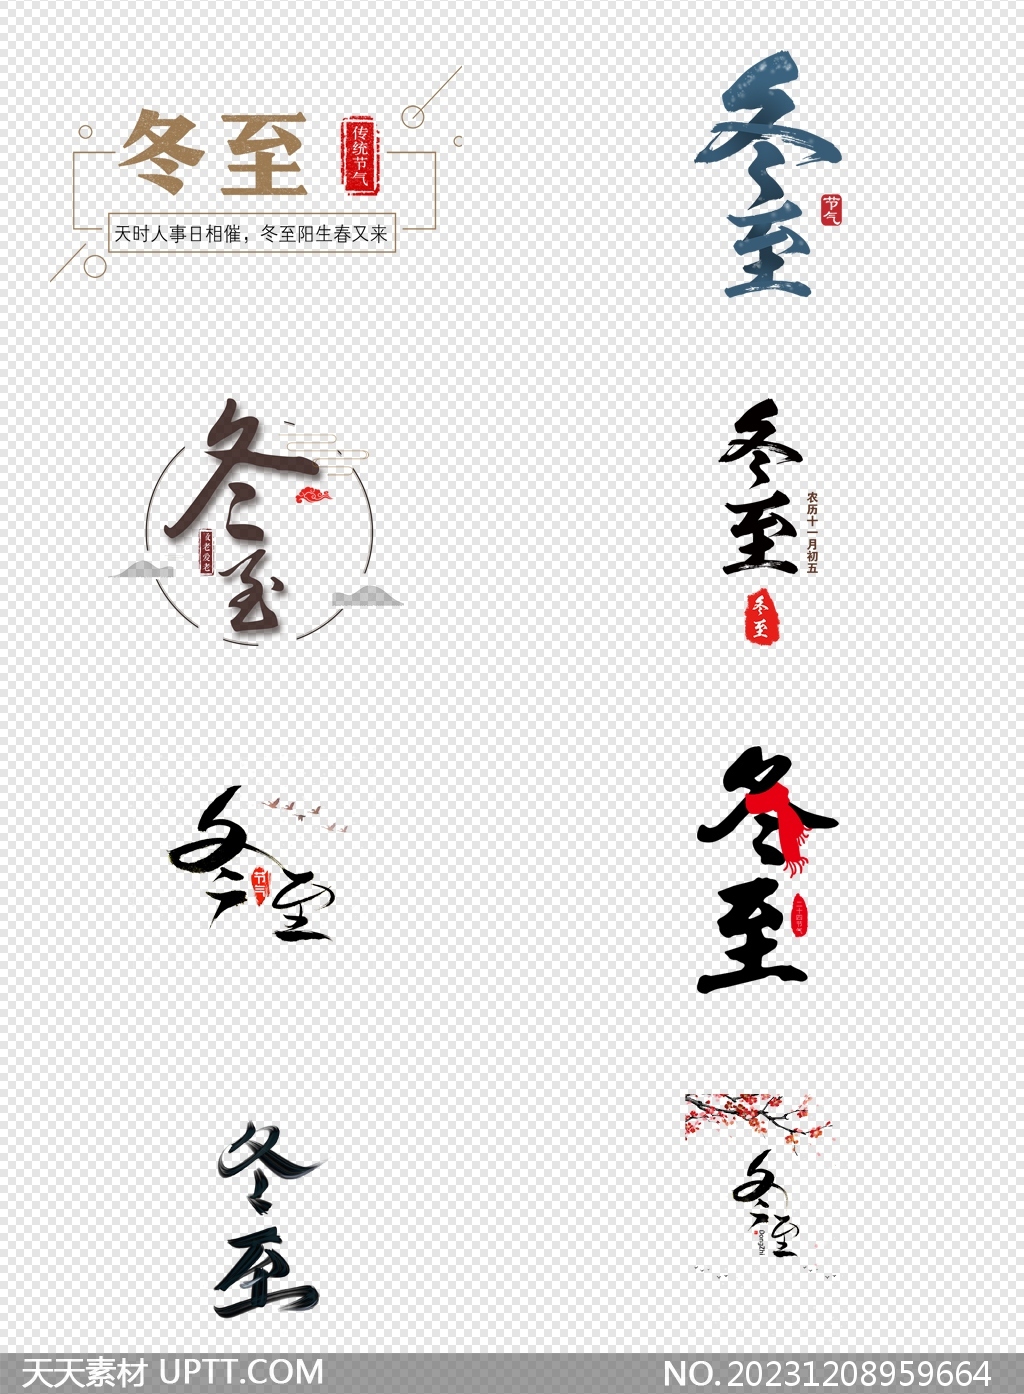 冬至
传统节气
天时人事日相催，冬至阳生春又来
冬至
节气
冬至
爱老
冬至
农历十一月初五
冬至
冬至
节气
冬至
二十四节气
冬至
冬至
DongZhi
天天素材 UPTT.COM
NO.20231208959664